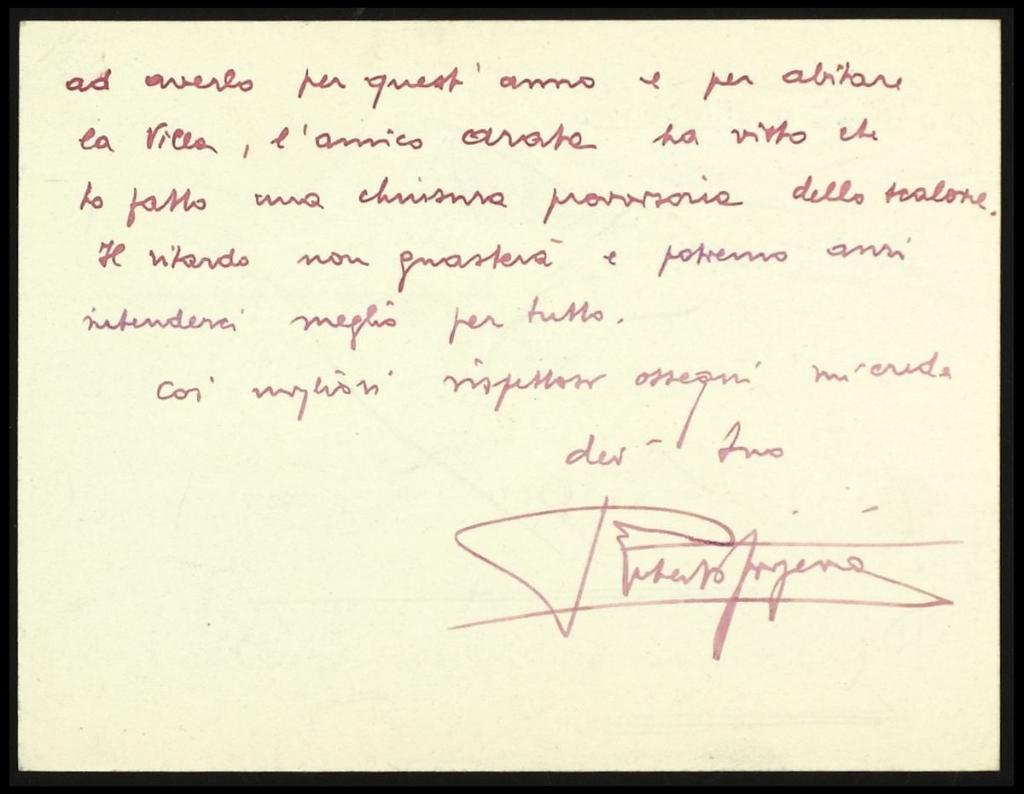 ad averlo per quest'anno e per abitare
la Villa, l'amico Arata ha visto che
ho fatto una chiusura provvisoria dello scalone.
Il ritardo non guasterà e potremo anzi
intenderci meglio per tutto.
Coi migliori rispettosi ossequi mi creda
dev- Suo